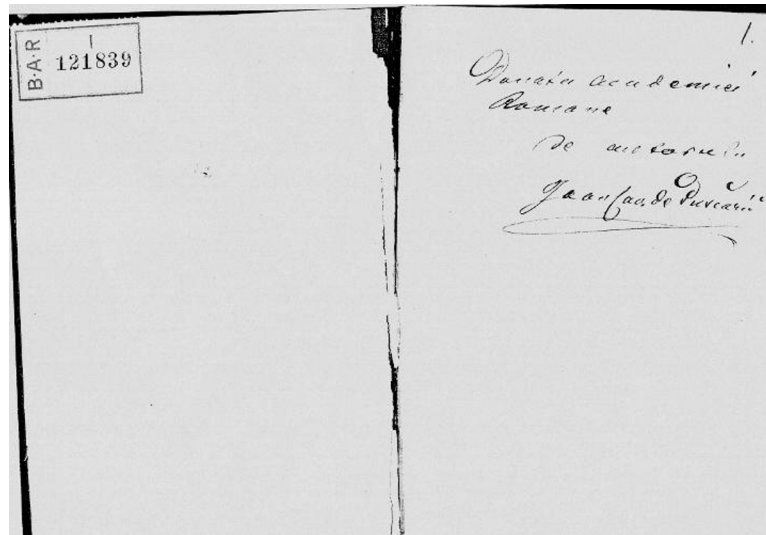 B·A·R
I
121839
1.
Donată academiei
Romane
de autorulu
Ioan Cav. de Puscariu